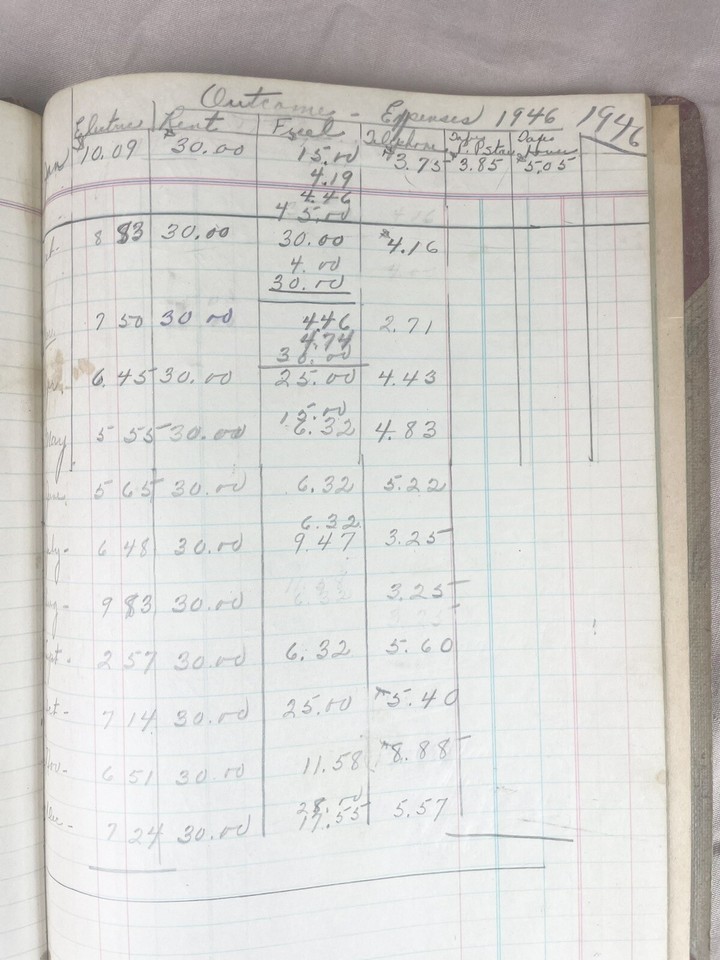 Outcome - Expenses 1946 1946
Electric Rent Fuel Telephone
$10.09 $30.00 15.00 $3.75 $3.85 $5.05
4.19
4.46
45.00
8 83 30.00 30.00 $4.16
4.00
30.00
7 50 30 00 4.46 2.71
4.74
30.00
6.45 30.00 25.00 4.43
15.00
May 5 55 30.00 6.32 4.83
5 65 30.00 6.32 5.22
6.32
6 48 30.00 9.47 3.25
9 83 30.00 3.25
2 57 30.00 6.32 5.60
7 14 30.00 25.00 $5.40
6 51 30.00 11.58 $8.88
28.00
7 24 30.00 17.55 5.57